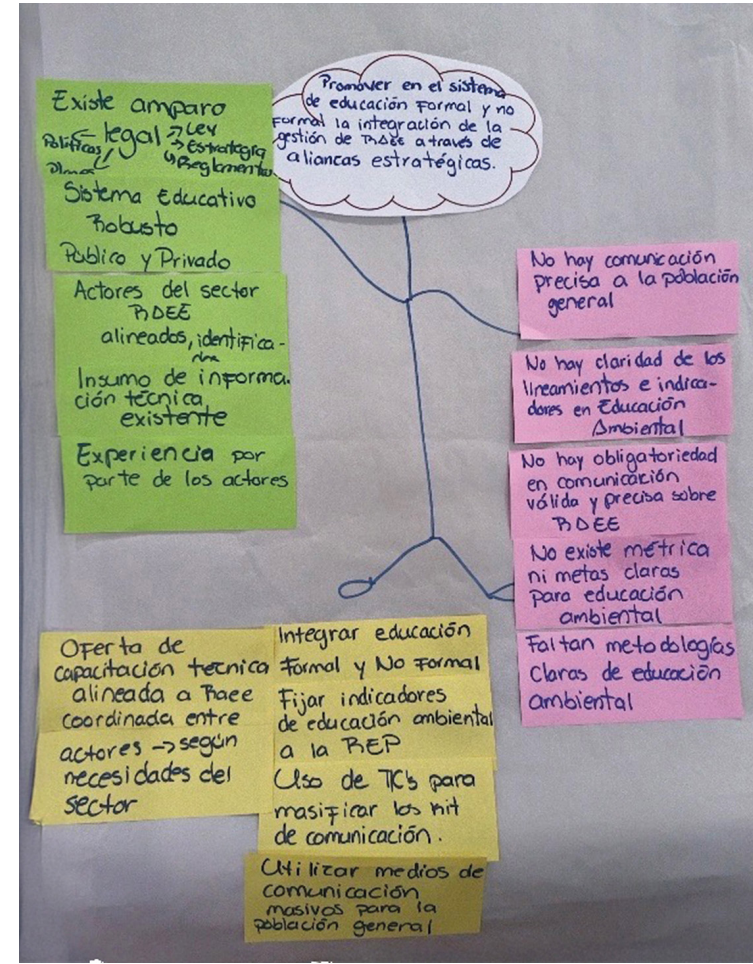 Promover en el sistema
de educación Formal y no
Formal la integración de la
gestión de RAEE a través de
aliancas estratégicas.
Existe amparo
legal → Ley
Políticas → Estrategia
Reglamento
Sistema Educativo
Robusto
Público y Privado
Actores del sector
RDEE
alineados, identifica-
Insumo de informa.
ción técnica
existente
Experiencia por
parte de los actores
No hay comunicación
precisa a la población
general
No hay claridad de los
lineamientos e indica-
dores en Educación
Ambiental
No hay obligatoriedad
en comunicación
válida y precisa sobre
RDEE
No existe métrica
ni metas claras
para educación
ambiental
Faltan metodologías
Claras de educación
ambiental
Oferta de
capacitación técnica
alineada a Raee
coordinada entre
actores → según
necesidades del
sector
Integrar educación
Formal y No Formal
Fijar indicadores
de educación ambiental
a la REP
Uso de TIC's para
masificar los kit
de comunicación.
Utilizar medios de
comunicación
masivos para la
población general